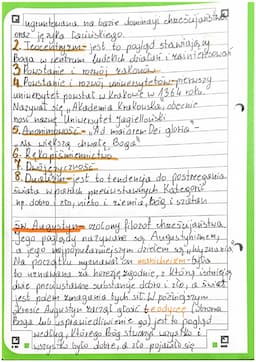 ugruntowana na bazie dominacji chrześcijaństwa
oraz języka łacińskiego.
2. Teocentryzm - jest to pogląd stawiający
Boga w centrum ludzkich działań i zainteresowań
3. Powstanie i rozwój zakonów
4. Powstanie i rozwój uniwersytetów - pierwszy
uniwersytet powstał w Krakowie w 1364 roku.
Nazywał się "Akademia Krakowska, obecnie
nosi nazwę Uniwersytet Jagielloński
5. Anonimowość - "Ad maiorem Dei gloria" -
"Na większą chwałę Boga"
6. Rękopiśmiennictwo
7. Dwujęzyczność
8. Dualizm - jest to tendencja do postrzegania
świata w parach przeciwstawnych kategorii
np. dobro i zło, niebo i ziemia, Bóg i szatan
Św. Augustyn - czołowy filozof chrześcijaństwa
Jego poglądy nazywane są Augustynizmem,
a jego najpopularniejszym dziełem są "Wyznania"
Na początku wyznawał on manicheizm - była
to uznawana za herezję zgodnie, z którą istnieją
dwie przeciwstawne substancje dobro i zło, a świat
jest polem zmagania tych sił. W późniejszym
okresie Augustyn zaczął głosić teodyceę (obrona
Boga lub usprawiedliwienie go) jest to pogląd
według którego Bóg stworzył wszystko i
wszystko było dobre, a zło pojawiło się